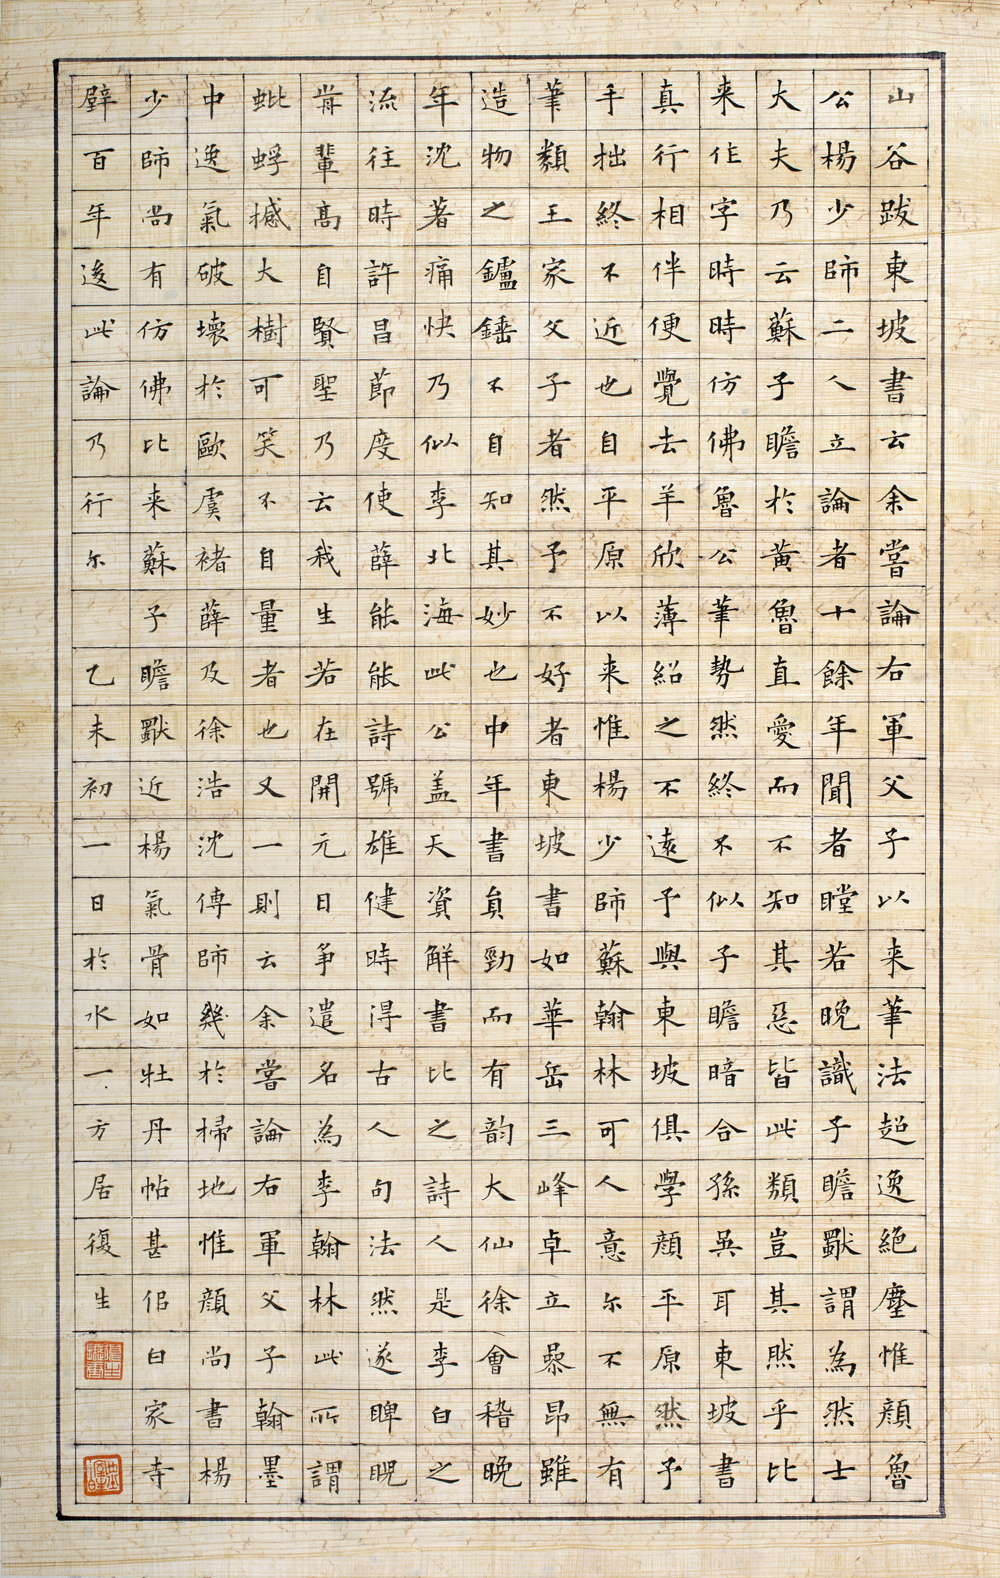 山谷跋東坡書云余嘗論右軍父子以来筆法超逸絶塵惟顔魯
公楊少師二人立論者十餘年聞者瞠若晚識子瞻獻謂為然士
大夫乃云蘇子瞻於黃魯直愛而不知其惡皆此類豈其然乎比
来作字時時仿佛魯公筆勢然終不似子瞻暗合孫吳耳東坡書
真行相伴便覺去羊欣薄紹之不遠予與東坡俱學顔平原然予
手拙終不近也自平原以来惟楊少師蘇翰林可人意尓不無有
筆類王家父子者然予不好者東坡書如華岳三峰卓立曑昻雖
造物之鑪錘不自知其妙也中年書負勁而有韵大仙徐會稽晚
年沈著痛快乃似李北海此公盖天資解書比之詩人是李白之
流往時許昌莭度使薛能能詩號雄健時淂古人句法然遂睥睨
耑輩髙自賢聖乃云我生若在開元日爭遣名為李翰林此所謂
蚍蜉撼大樹可笑不自量者也又一則云余嘗論右軍父子翰墨
中逸氣破壞於歐虞褚薛及徐浩沈傳師幾於掃地惟顔尚書楊
少師尚有仿佛比来蘇子瞻獻近楊氣骨如牡丹帖甚佀白家寺
壁百年逡此論乃行尓 乙未初一日於水一方居復生